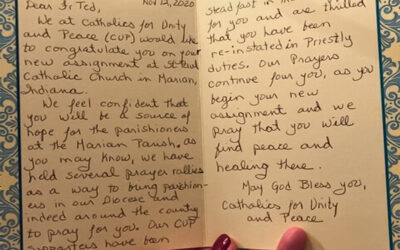 Dear Fr Ted, Nov 12, 2020
We at Catholics for Unity
and Peace (CUP) would like
to congratulate you on your
new assignment at St. Paul
Catholic Church in Marion,
Indiana.
We feel confident that
you will be a source of
hope for the parishioners
at the Marian Parish. As
you may know, we have
held several prayer rallies
as a way to bring parishion-
ers in our Diocese and
indeed around the country
to pray for you. Our CUP
supporters have been
steadfast in
for you and are thrilled
that you have been
re-instated in Priestly
duties. Our Prayers
continue for you, as you
begin your new
assignment and we
pray that you will
find peace and
healing there.
May God Bless you,
Catholics for Unity
and Peace